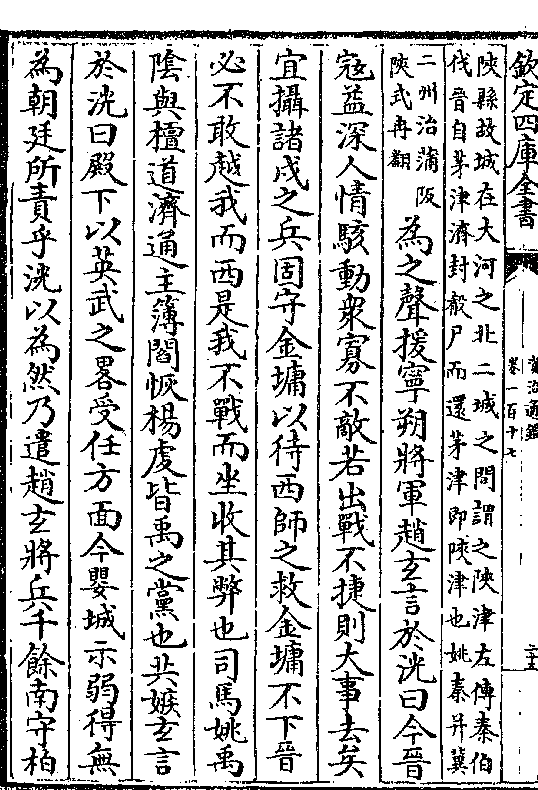 欽定四庫全書
資治通鑑
卷一百十七
陜縣故城在大河之北二城之間謂之陜津左傳秦伯
伐晉自茅津濟封殽尸而還茅津即陜津也姚秦并冀
二州治蒲阪
陜式冉翻
為之聲援寧朔將軍趙玄言於洸曰今晉
寇益深人情駭動衆寡不敵若出戰不捷則大事去矣
宜攝諸戍之兵固守金墉以待西師之救金墉不下晉
必不敢越我而西是我不戰而坐收其弊也司馬姚禹
隂與檀道濟通主簿閻恢楊虔皆禹之黨也共嫉玄言
於洸曰殿下以英武之畧受任方面今嬰城示弱得無
為朝廷所責乎洸以為然乃遣趙玄將兵千餘南守柏